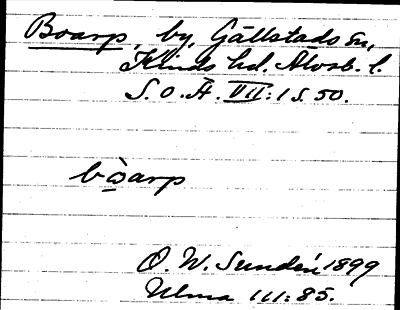 Boarp, by, Gällstads sn,
Kinds hd. Älvsb. l.
S. O. Ä. VII: 1 s. 50.
bòarp
O. W. Sundén 1899
Ulma 111: 85.